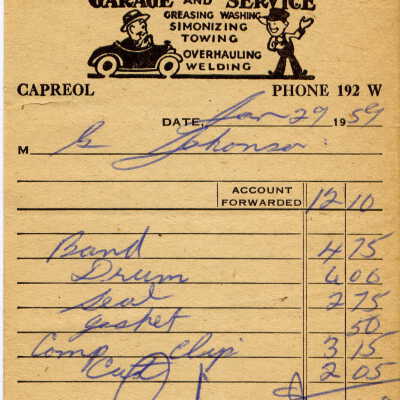 GARAGE AND SERVICE
GREASING WASHING
SIMONIZING
TOWING
OVERHAULING
WELDING
CAPREOL PHONE 192 W
DATE, Jan 29 1959
M G Johnson
ACCOUNT FORWARDED 12 10
Band 4 75
Drum 6 00
Seal 2 75
gasket 50
Comp Clip 3 15
2 05